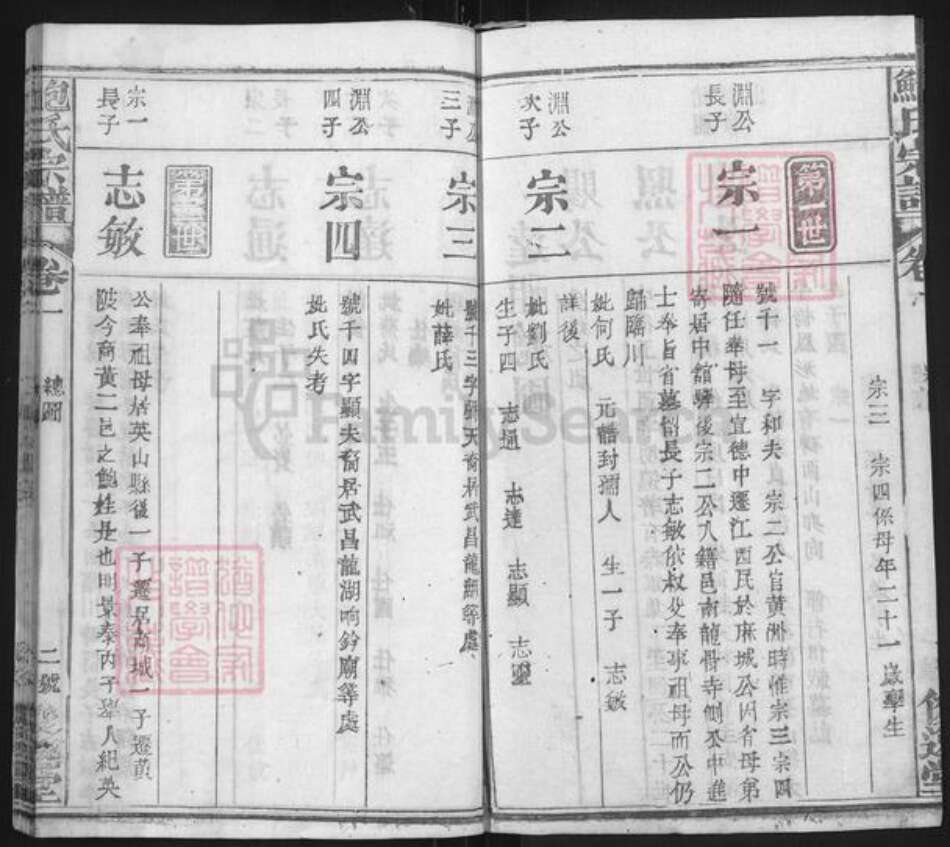 鮑氏宗譜
宗三 宗四係母年二十一歲孿生
第二世
淵公
長子
宗一
號千一 字和夫 宗二公官黃洲時惟宗三宗四
隨任奉母至宣德中遷江西民於麻城公因省母第
寄居中舘驛後宗二公入籍邑南龍骨寺側公中進
士奉旨省墓留長子志敏依叔父奉事祖母而公仍
歸臨川
妣何氏 元酷封孺人 生一子 志敏
詳後
淵公
次子
宗二
妣劉氏
生子四 志通 志達 志顯 志聖
淵公
三子
宗三
號千三字顯天裔居武昌龍
等處
妣薛氏
淵公
四子
宗四
號千四字顯夫裔居武昌龍湖响鈴廟等處
妣氏失考
第三世
宗一
長子
志敏
公奉祖母居英山縣後一子遷居商城一子遷黃
陂今商黃二邑之鮑姓是也明景泰丙子舉人紀英
鮑氏宗譜
卷一
總圖
二號
FamilySearch